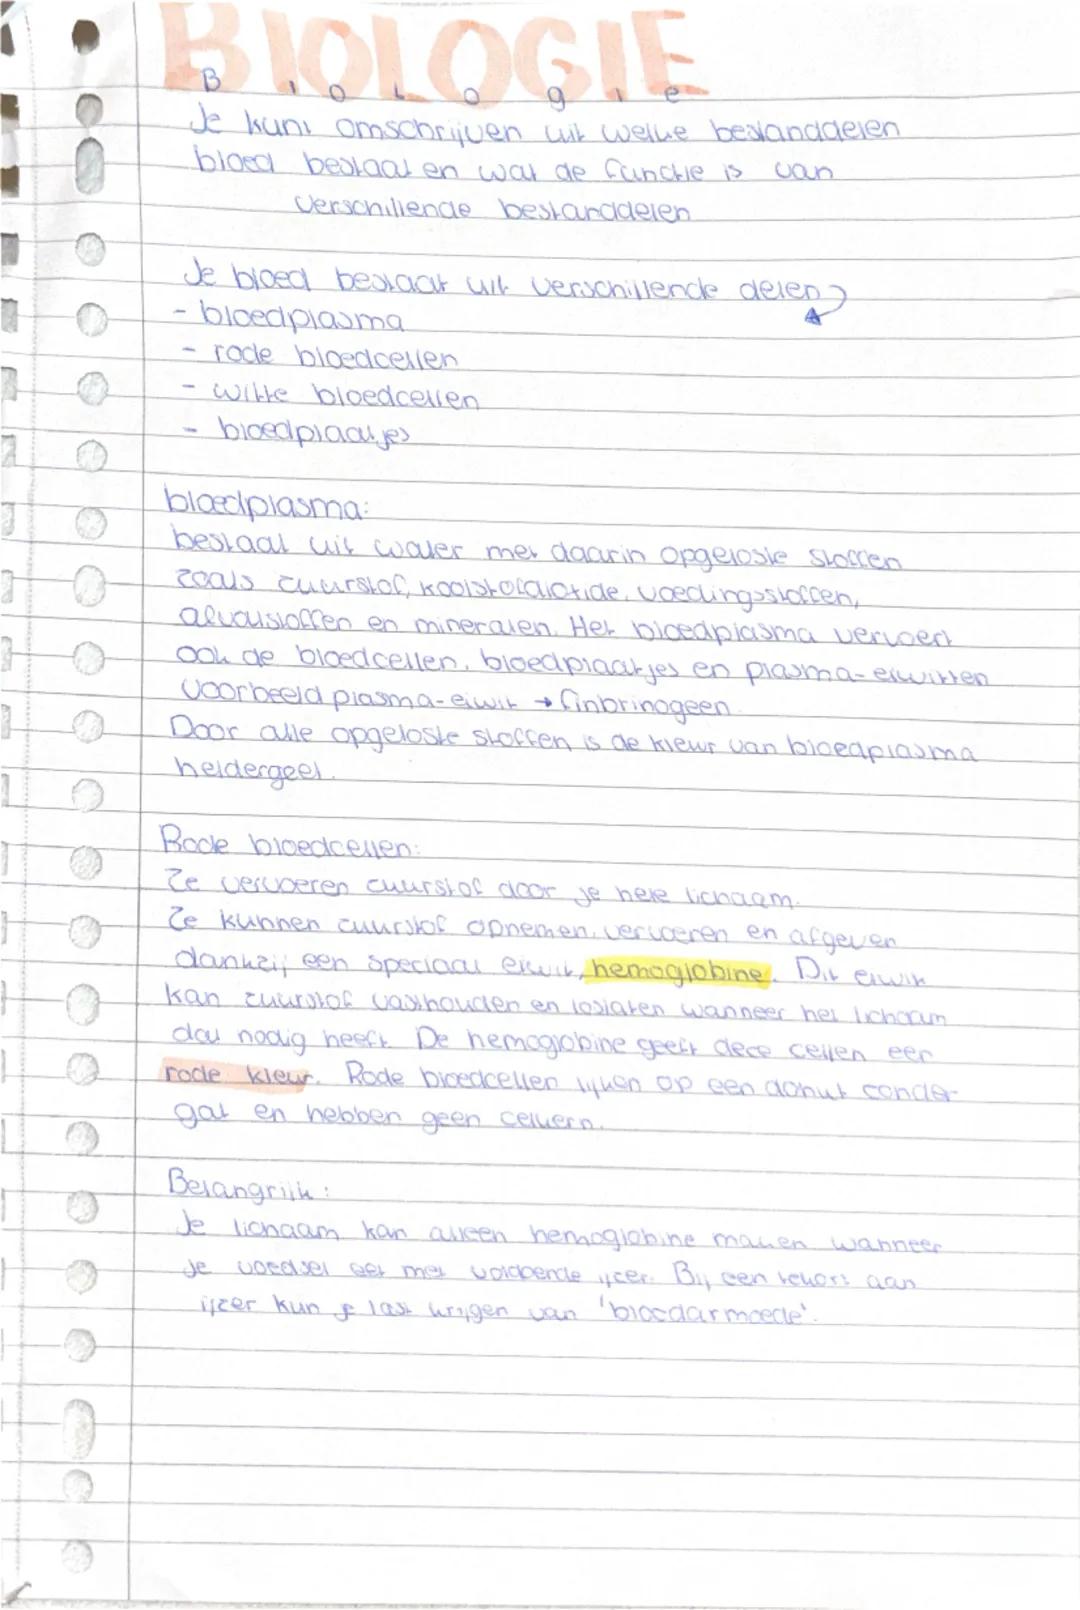 BIOLOGIE
Biologie
Je kunt omschrijven uit welke bestanddelen
bloed bestaat en wat de functie is van
verschillende bestanddelen
Je bloed bestaat uit verschillende delen
- bloedplasma
- rode bloedcellen
- witte bloedcellen
- bloedplaatjes
bloedplasma:
bestaat uit water met daarin opgeloste stoffen
zoals zuurstof, koolstofdioxide, voedingsstoffen,
afvalstoffen en mineralen. Het bloedplasma vervoert
ook de bloedcellen, bloedplaatjes en plasma-eiwitten
voorbeeld plasma-eiwit → finbrinogeen
Door alle opgeloste stoffen is de kleur van bloedplasma
heldergeel.
Rode bloedcellen:
Ze vervoeren zuurstof door je hele lichaam.
Ze kunnen zuurstof opnemen, vervoeren en afgeven
dankzij een speciaal eiwit, hemoglobine. Dit eiwit
kan zuurstof vasthouden en loslaten wanneer het lichaam
dat nodig heeft. De hemoglobine geeft deze cellen een
rode kleur. Rode bloedcellen lijken op een donut zonder
gat en hebben geen celkern.
Belangrijk:
Je lichaam kan alleen hemoglobine maken wanneer
je voedsel eet met voldoende ijzer. Bij een tekort aan
ijzer kun je last krijgen van 'bloedarmoede'.